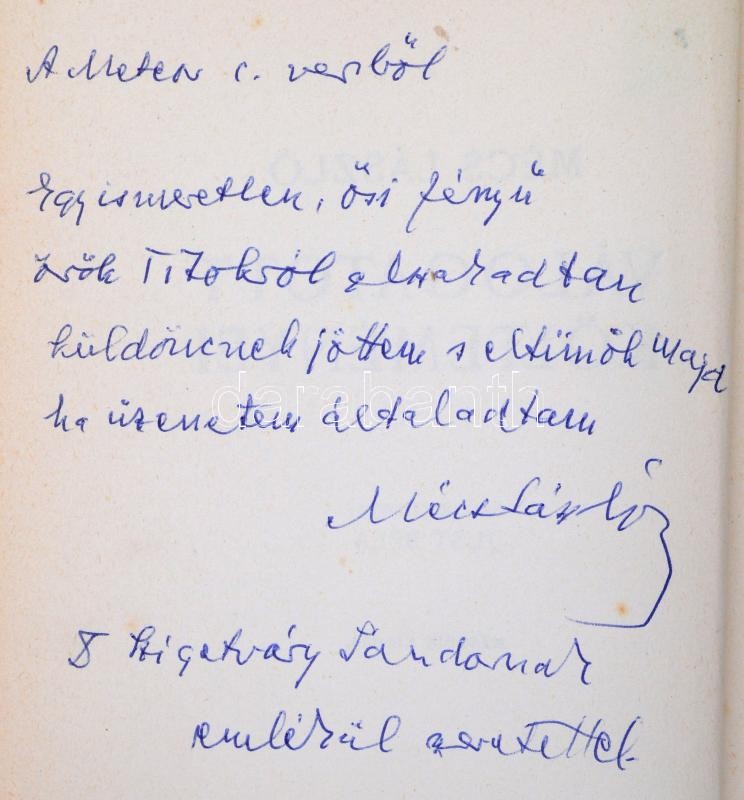 A Meteor c. versből
Egy ismeretlen, ősi fényű
örök Titokról elszakadtan
küldöncnek jöttem s eltünök majd
ha üzenetem általadtam
Mécs László
Szigetváry Sandornak
emlékül szeretettel.
darabanth.com
MÉCS LÁSZLÓ